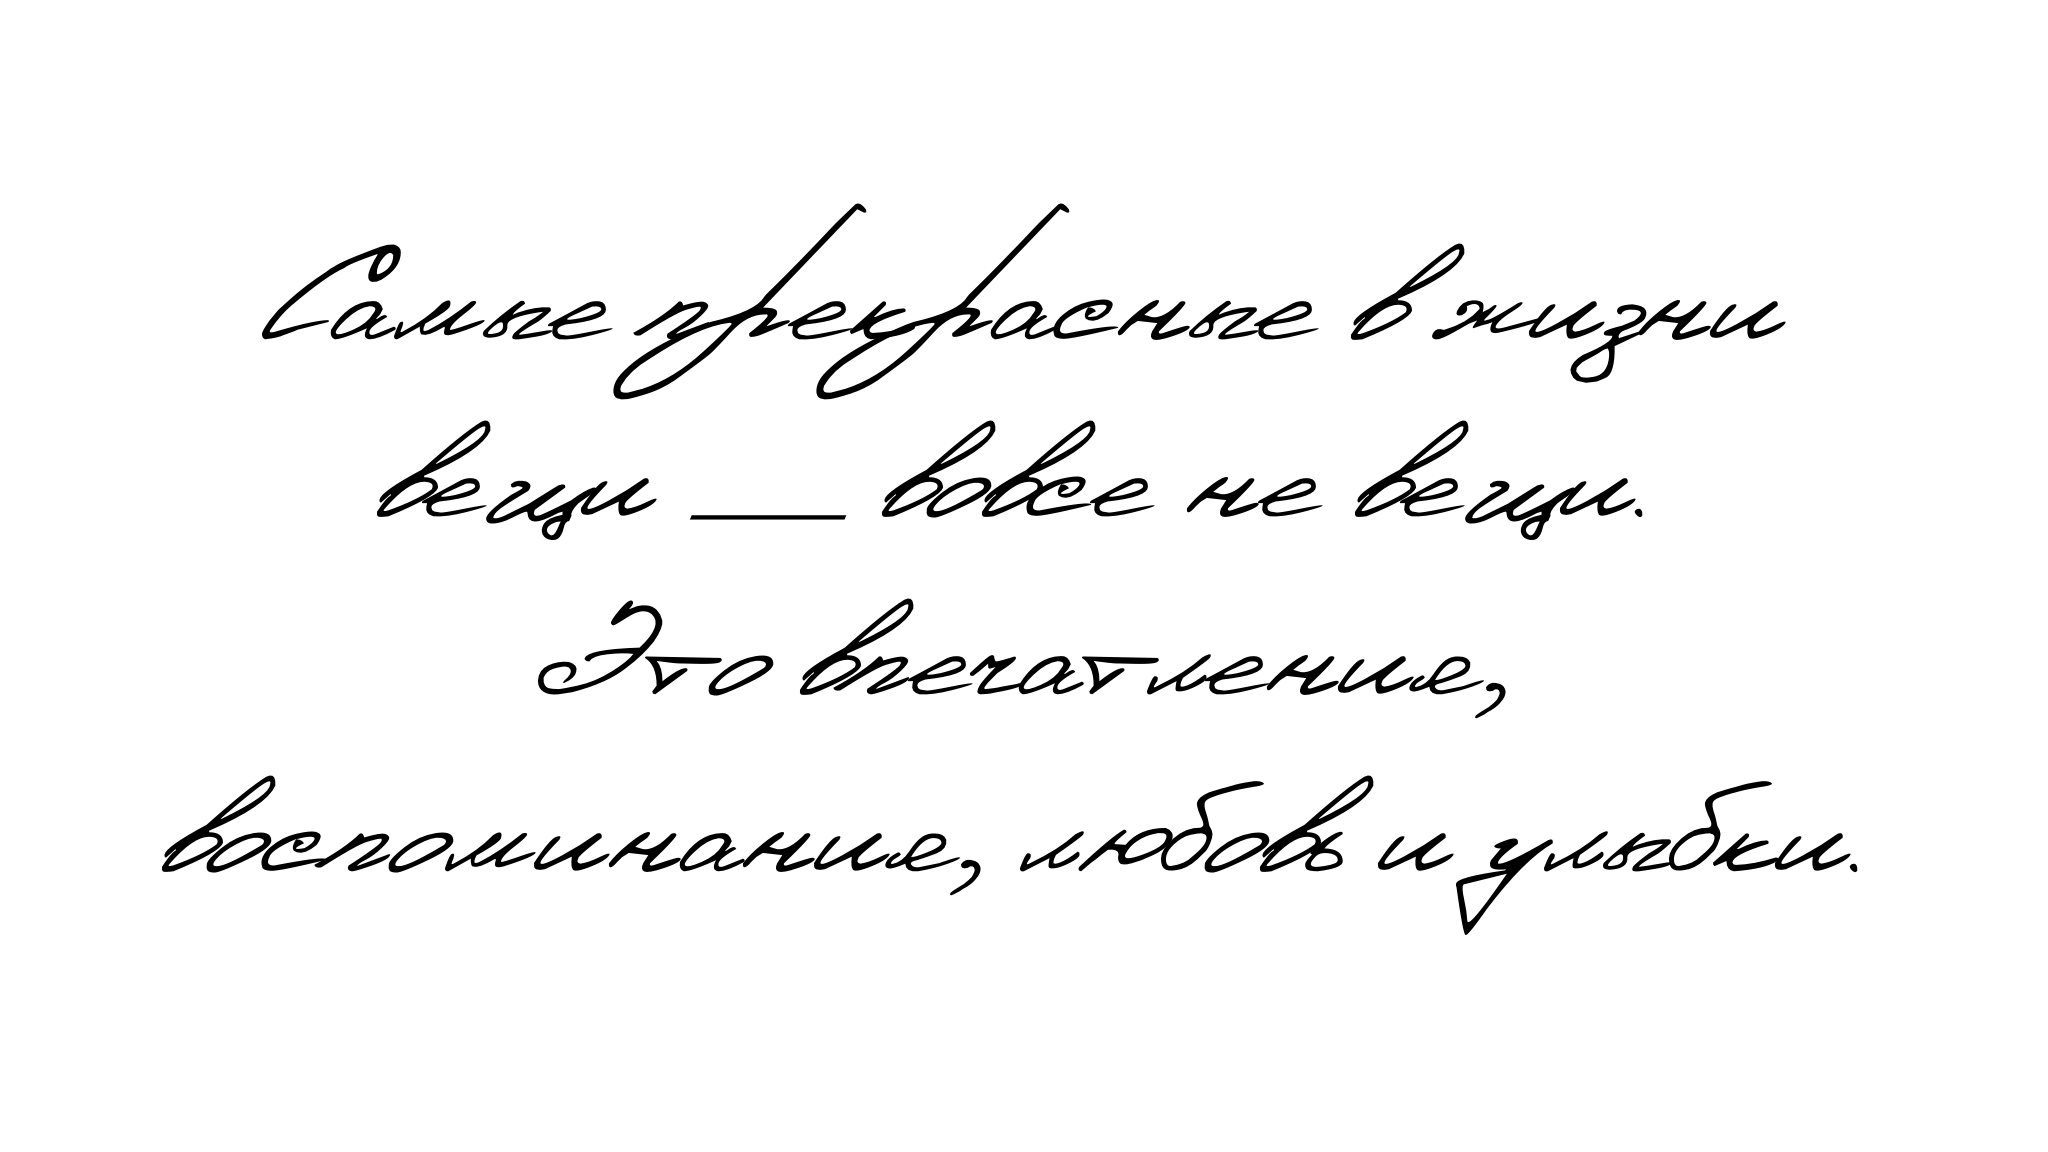 Самые прекрасные в жизни
вещи — вовсе не вещи.
Это впечатления,
воспоминания, любовь и улыбки.